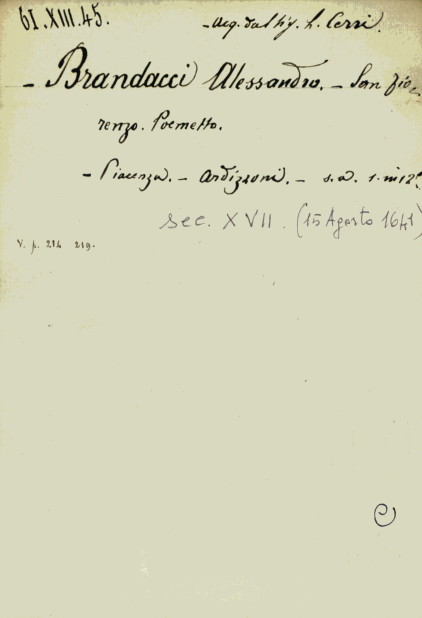 6I.XIII.45.
- Acq. dal Sig. L. Cerri.
- Brandacci Alessandro. - San Fio-
renzo. Poemetto.
- Piacenza. - Ardizzoni. - s.a. 1. in 12°.
sec. XVII. (15 Agosto 1641)
V. p. 214 219.
C